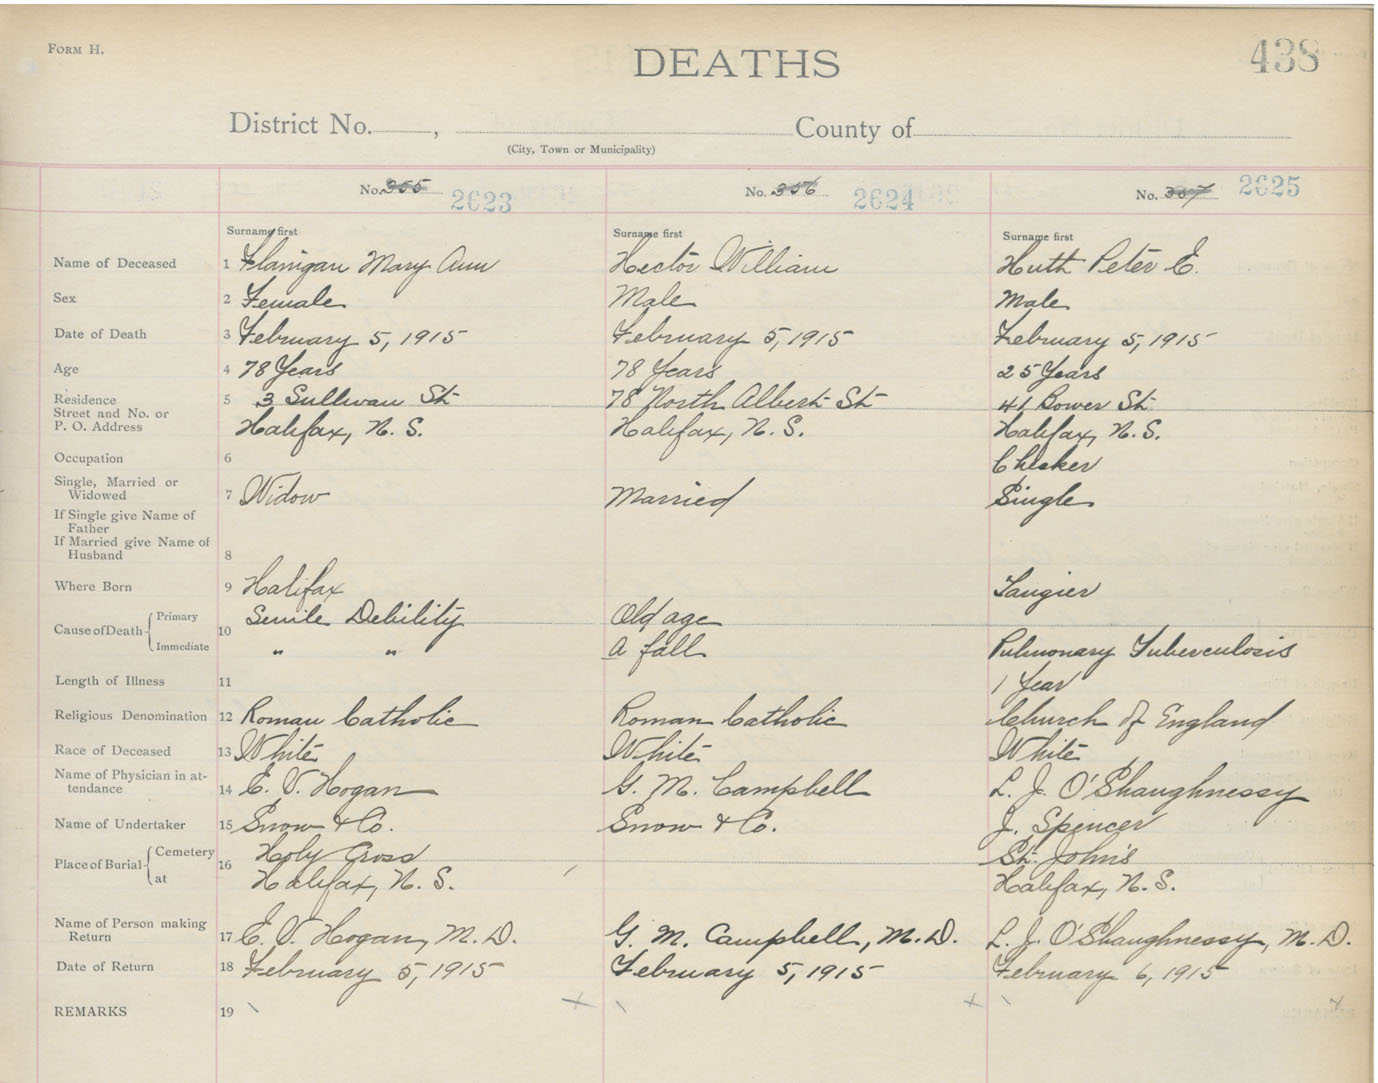 FORM H.
DEATHS
438
District No. , County of
(City, Town or Municipality)
No. 355 2623 No. 356 2624 No. 357 2625
Surname first Surname first Surname first
Name of Deceased 1 Flanigan Mary Ann Hector William Huth Peter E.
Sex 2 Female Male Male
Date of Death 3 February 5, 1915 February 5, 1915 February 5, 1915
Age 4 78 Years 78 Years 25 Years
Residence 5 3 Sullivan St. 78 North Albert St. 41 Bower St.
Street and No. or
P. O. Address Halifax, N. S. Halifax, N. S. Halifax, N. S.
Occupation 6 Checker
Single, Married or
Widowed 7 Widow Married Single
If Single give Name of
Father
If Married give Name of
Husband 8
Where Born 9 Halifax Tangier
Cause of Death Primary 10 Senile Debility Old age
Immediate " " A fall Pulmonary Tuberculosis
Length of Illness 11 1 Year
Religious Denomination 12 Roman Catholic Roman Catholic Church of England
Race of Deceased 13 White White White
Name of Physician in at-
tendance 14 E. V. Hogan G. M. Campbell L. J. O'Shaughnessy
Name of Undertaker 15 Snow & Co. Snow & Co. J. Spencer
Place of Burial Cemetery 16 Holy Cross St. John's
at Halifax, N. S. Halifax, N. S.
Name of Person making
Return 17 E. V. Hogan, M. D. G. M. Campbell, M. D. L. J. O'Shaughnessy, M. D.
Date of Return 18 February 5, 1915 February 5, 1915 February 6, 1915
REMARKS 19